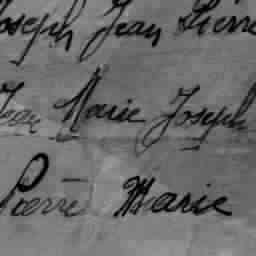 Joseph Jean Pierre
Jean Marie Joseph
Pierre Marie